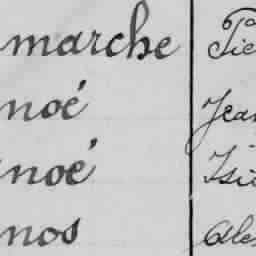 marche Pie
noé Jean
noé Isi
nos Ale